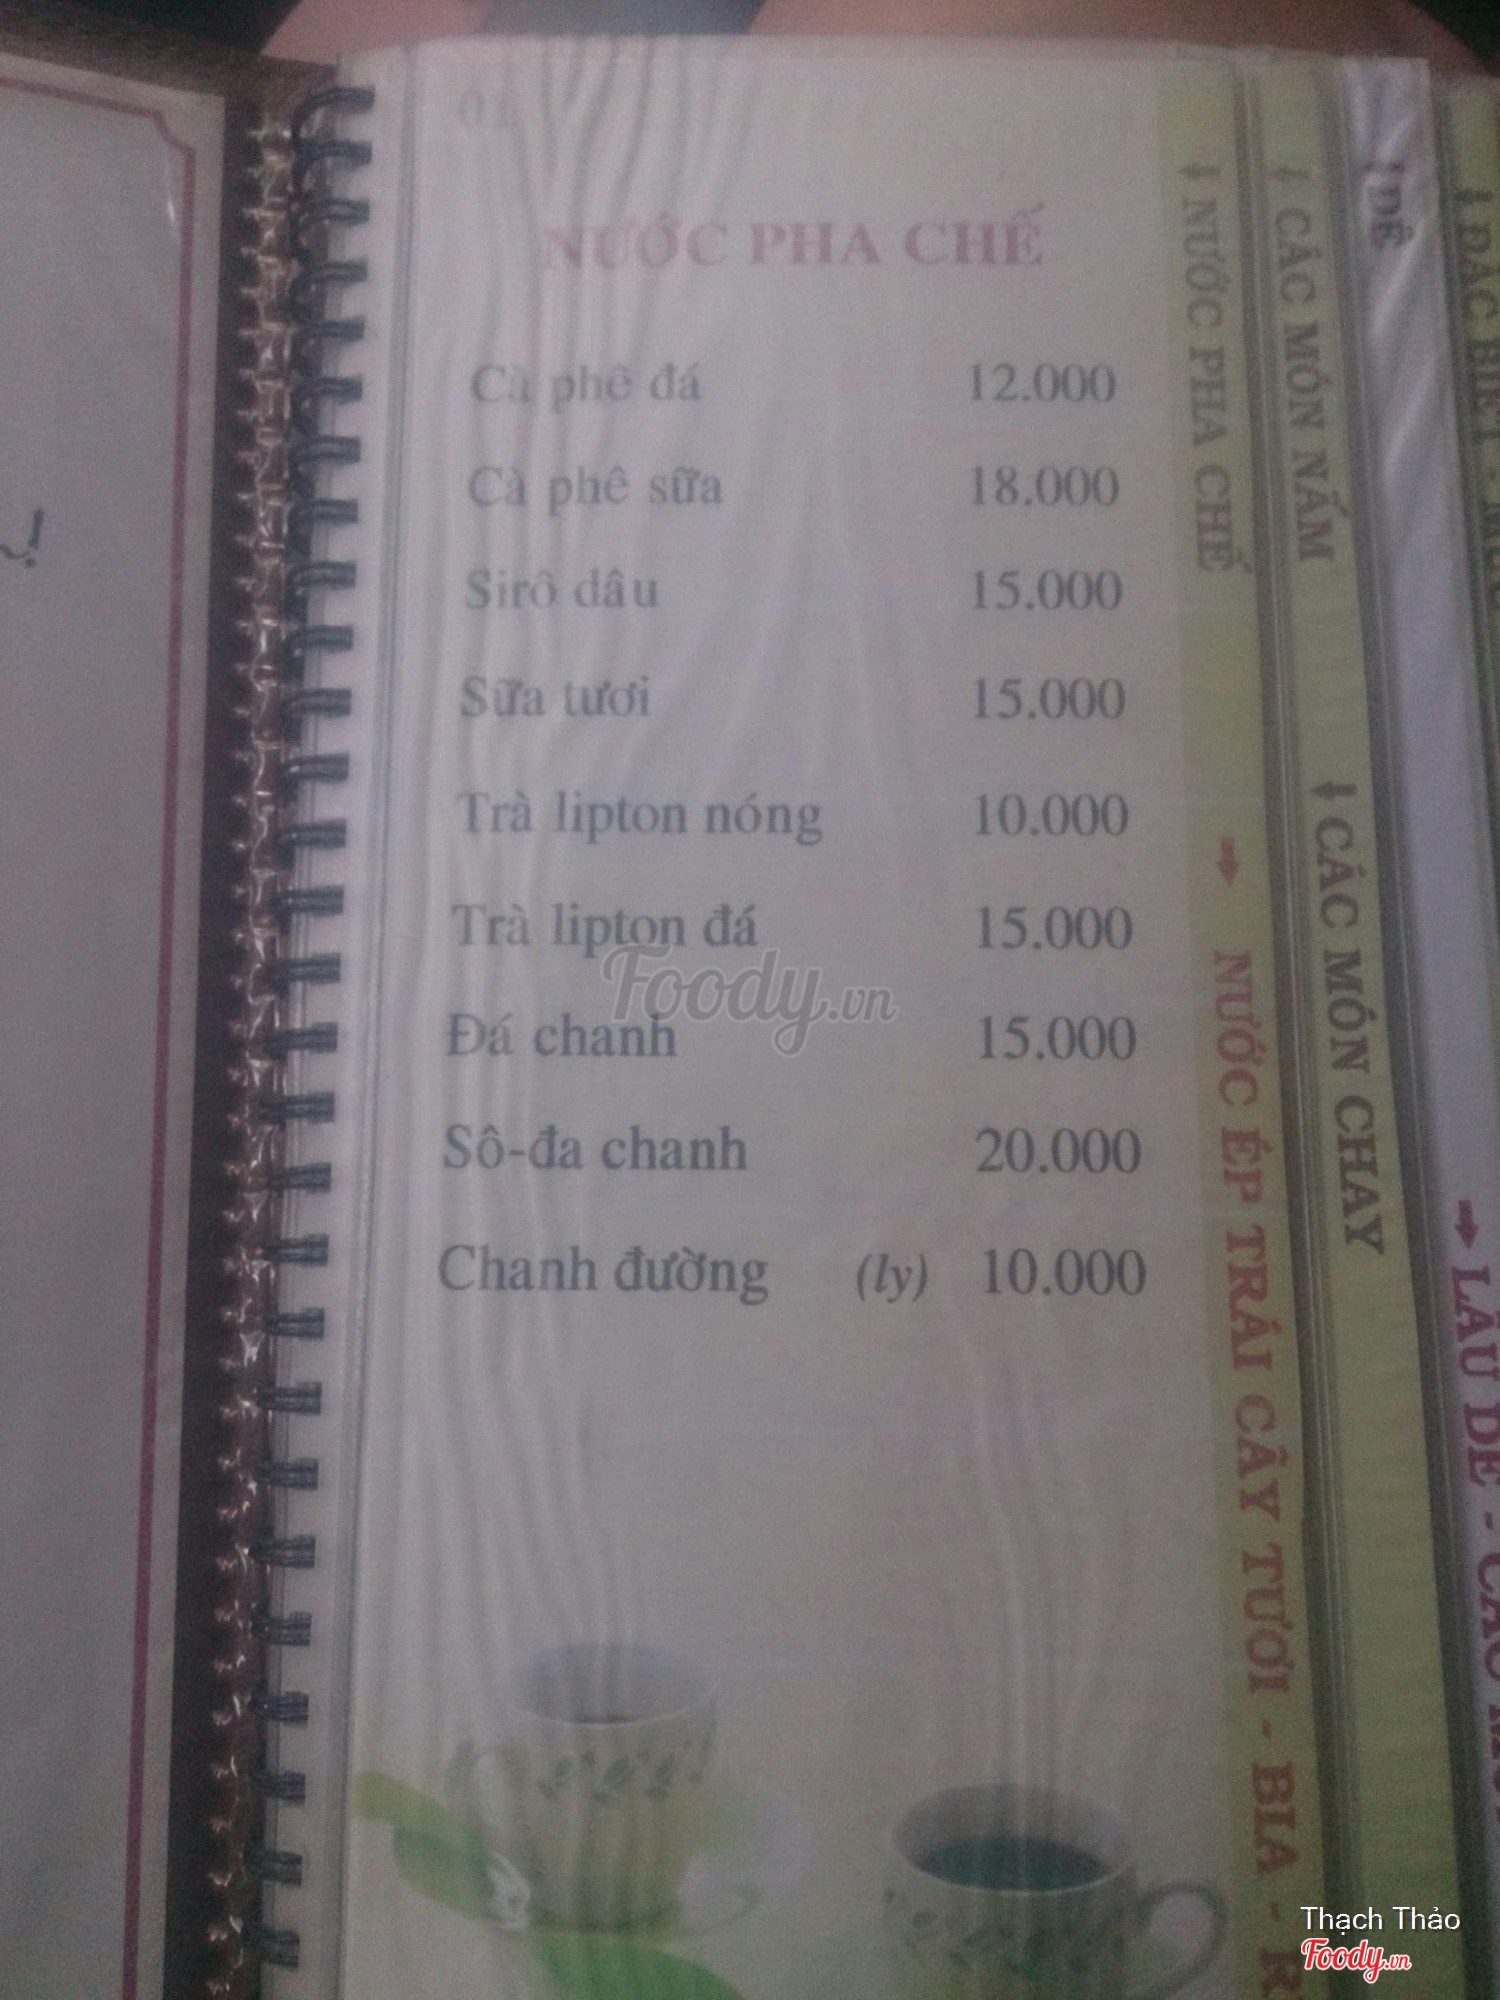 01
NƯỚC PHA CHẾ
Cà phê đá 12.000
Cà phê sữa 18.000
Sirô dâu 15.000
Sữa tươi 15.000
Trà lipton nóng 10.000
Trà lipton đá 15.000
Đá chanh 15.000
Sô-đa chanh 20.000
Chanh đường (ly) 10.000
NƯỚC PHA CHẾ
NƯỚC ÉP TRÁI CÂY TƯƠI - BIA -
CÁC MÓN NẤM
CÁC MÓN CHAY
DÊ
LẨU DÊ - CÁC
ĐẶC BIỆT -
Foody.vn
Thạch Thảo
Foody.vn